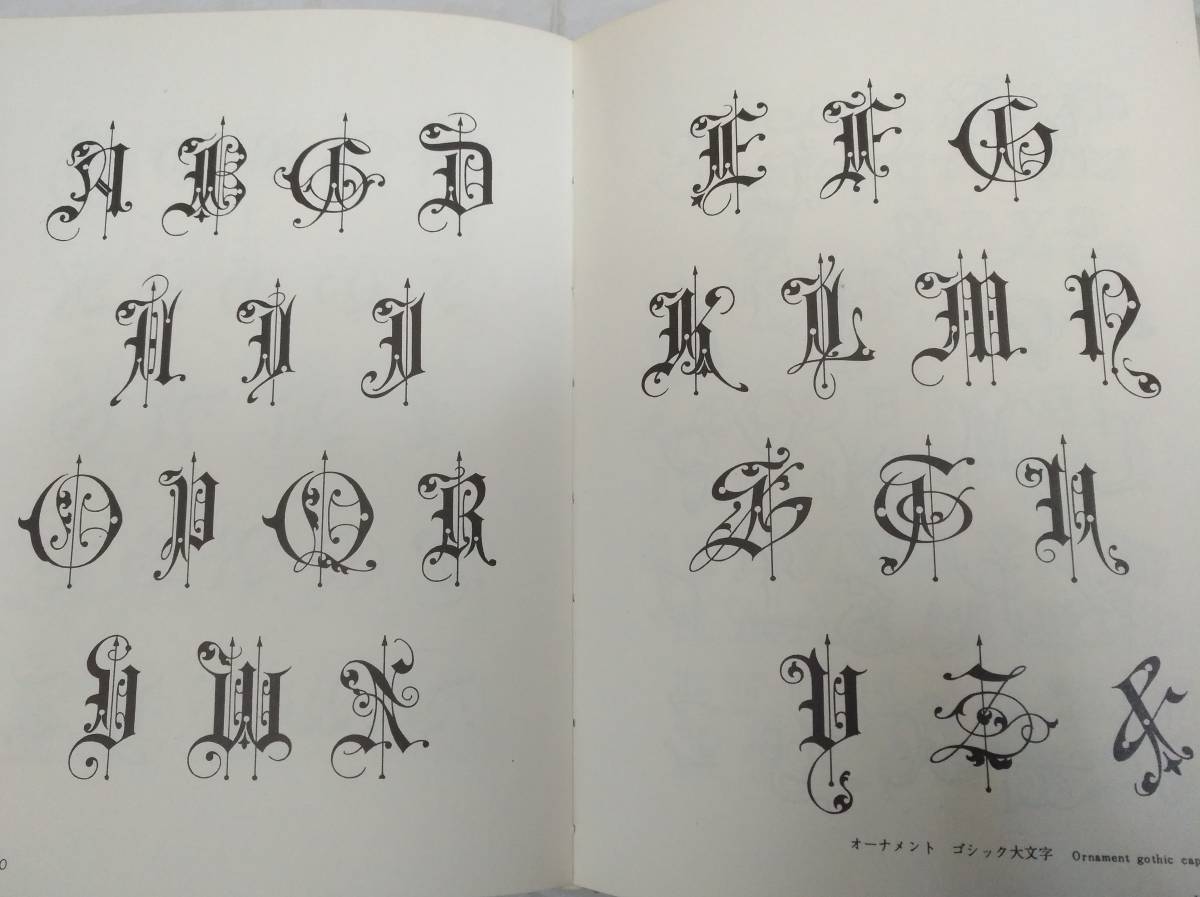 A B C D E F G
H I J K L M N
O P Q R S T U
V W X Y Z &
オーナメント ゴシック大文字 Ornament gothic cap
0